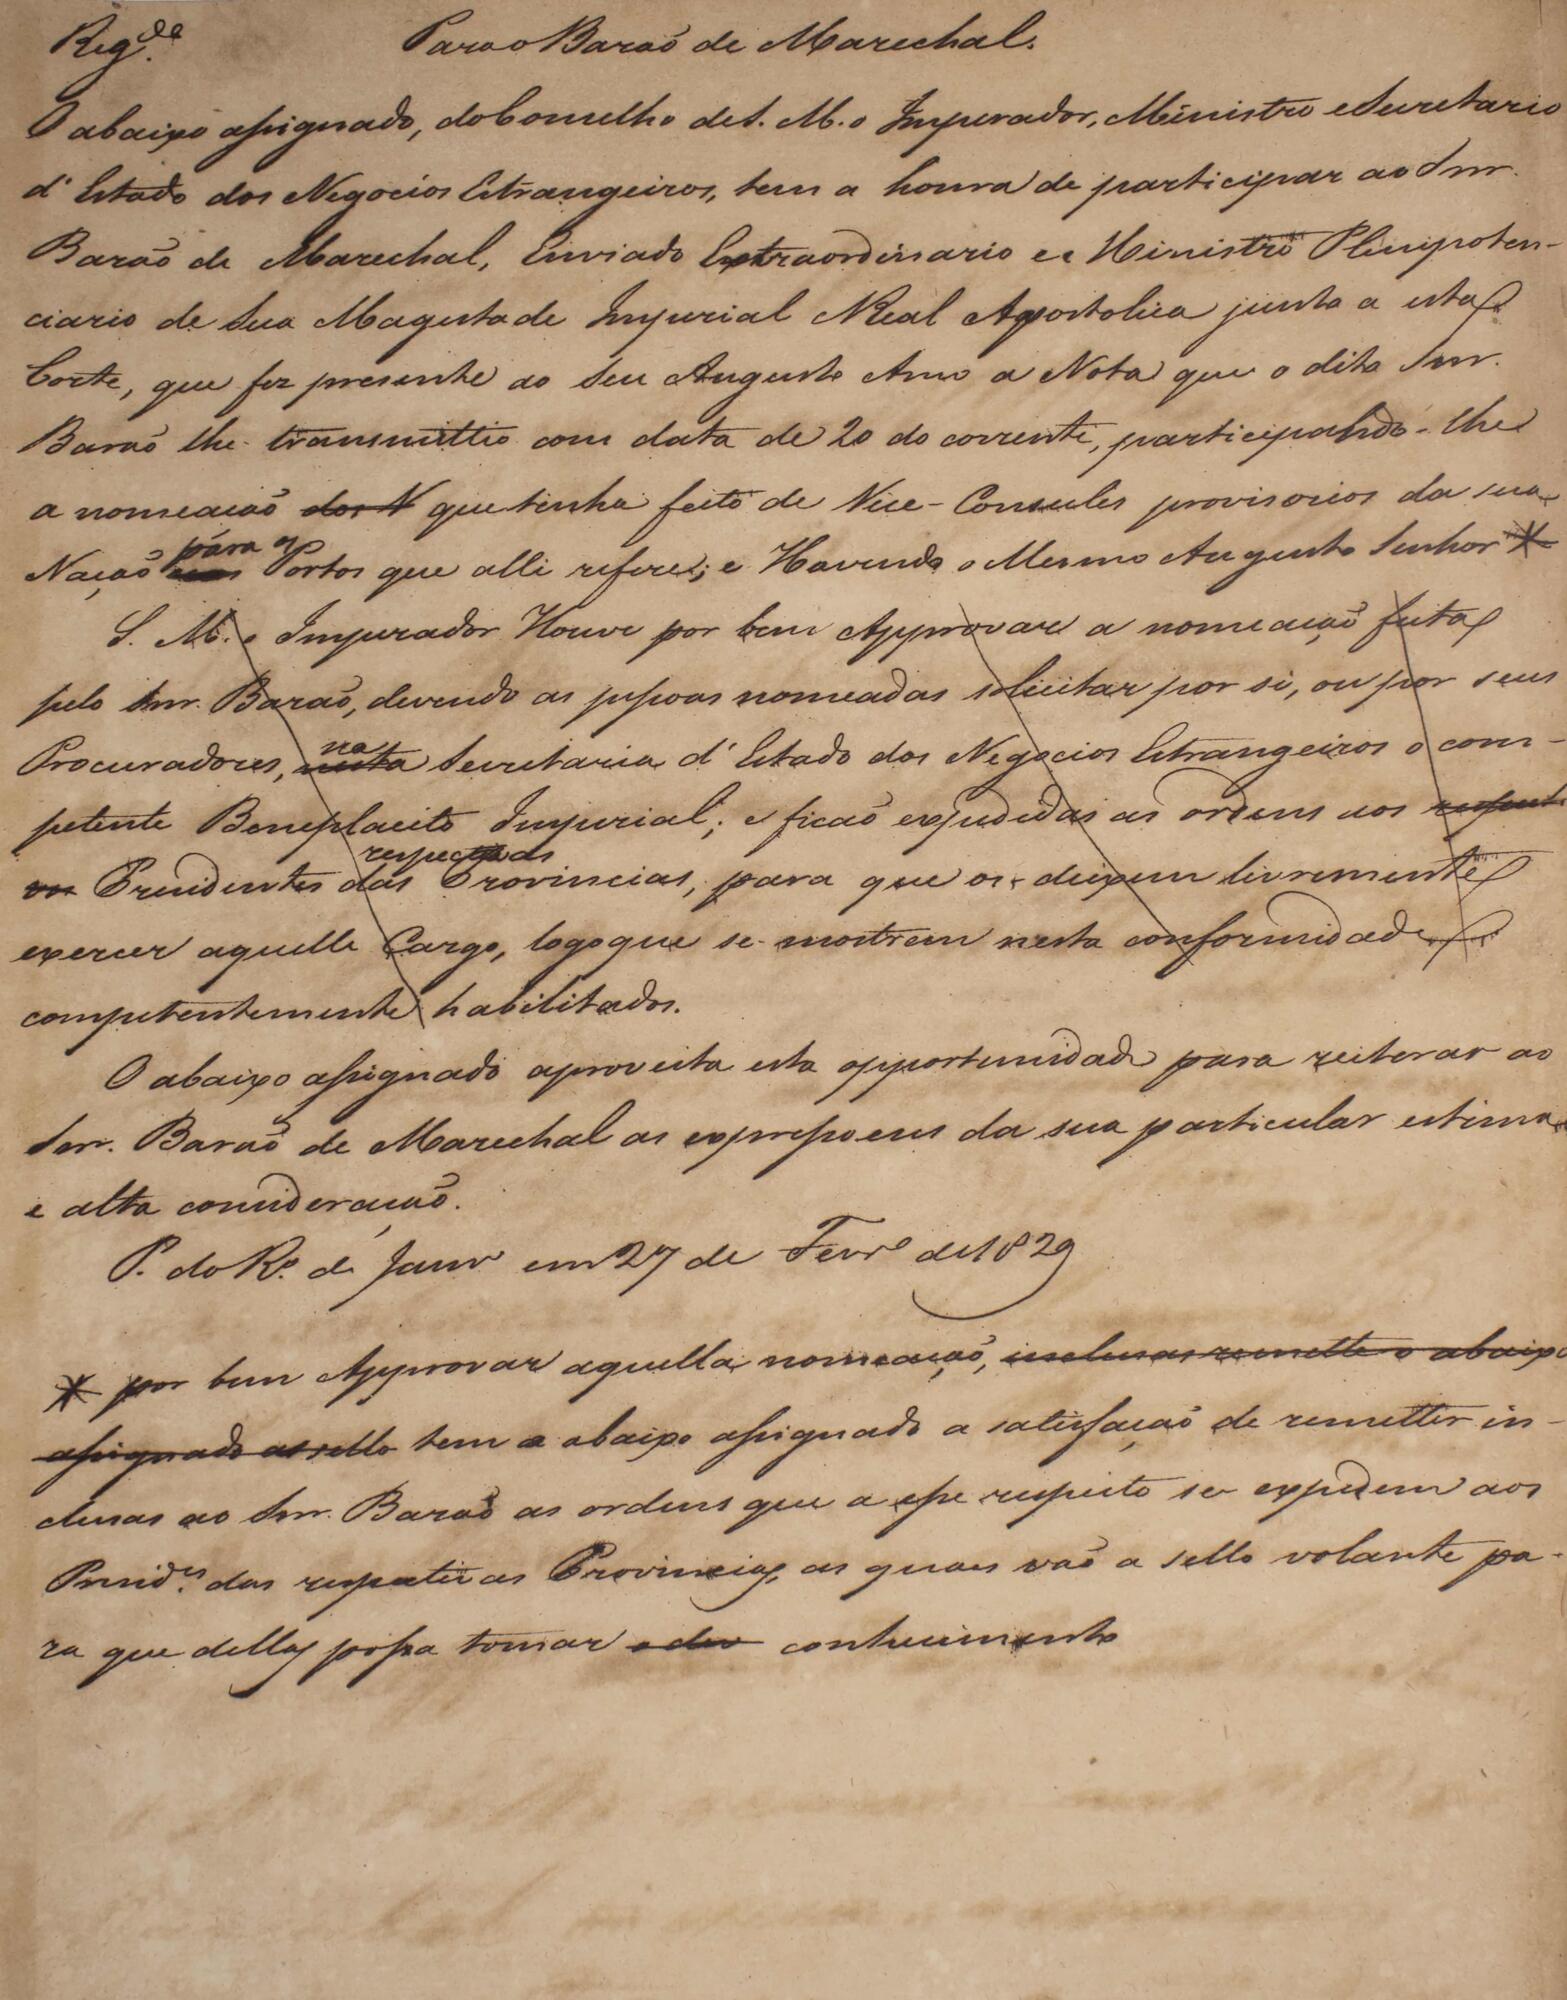 Reg.da Para o Barão de Marechal.
O abaixo assignado, do Conselho de S. M. o Imperador, Ministro e Secretario
d'Estado dos Negocios Estrangeiros, tem a honra de participar ao Snr.
Barão de Marechal, Enviado Extraordinario e Ministro Plenipoten-
ciario de Sua Magestade Imperial Real Apostolica junto a esta
Corte, que fez presente ao Seu Augusto Amo a Nota que o dito Snr.
Barão lhe transmittio com data de 20 do corrente, participando-lhe
a nomeação dos N que tinha feito de Vice-Consules provisorios da sua
Nação para os Portos que alli refere; e Havendo o Mesmo Augusto Senhor *
S. M. o Imperador Houve por bem Approvar a nomeação feita
pelo Snr. Barão, devendo as pessoas nomeadas solicitar por si, ou por seus
Procuradores, nesta na Secretaria d'Estado dos Negocios Estrangeiros o com-
petente Beneplacito Imperial; e ficão expedidas as ordens aos respecti
vos Presidentes das respectivas Provincias, para que os deixem livremente
exercer aquelle Cargo, logo que se mostrem nesta conformidade
competentemente habilitados.
O abaixo assignado aproveita esta opportunidade para reiterar ao
Snr. Barão de Marechal as expressoens da sua particular estima
e alta consideração.
P. do Rº. de Janrº em 27 de Fevrº de 1829
* por bem Approvar aquella nomeação, inclusas remette o abaixo
assignado as sello tem o abaixo assignado a satisfação de remetter in-
clusas ao Snr. Barão as ordens que a esse respeito se expedem aos
Presid.es das respectivas Provincias, as quaes vão a sello volante pa-
ra que dellas possa tomar o dev conhecimento